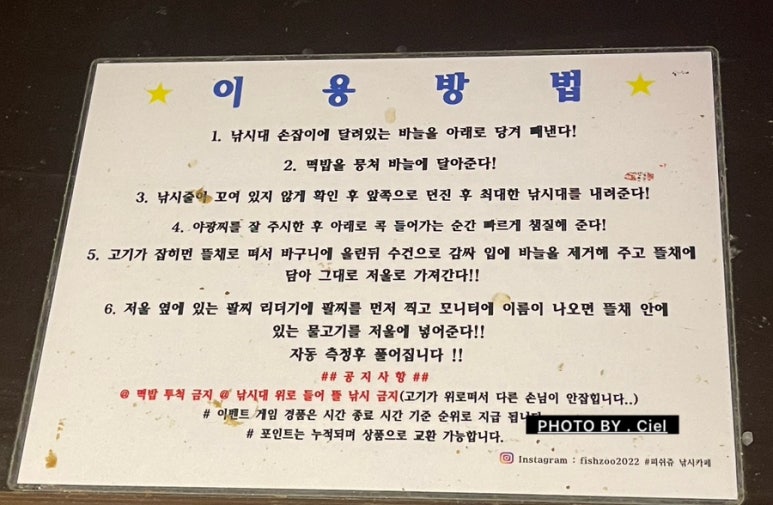 이 용 방 법
1. 낚시대 손잡이에 달려있는 바늘을 아래로 당겨 빼낸다!
2. 떡밥을 뭉쳐 바늘에 달아준다!
3. 낚시줄이 꼬여 있지 않게 확인 후 앞쪽으로 던진 후 최대한 낚시대를 내려준다!
4. 야광찌를 잘 주시한 후 아래로 콕 들어가는 순간 빠르게 챔질해 준다!
5. 고기가 잡히면 뜰채로 떠서 바구니에 올린뒤 수건으로 감싸 입에 바늘을 제거해 주고 뜰채에
담아 그대로 저울로 가져간다!!
6. 저울 옆에 있는 팔찌 리더기에 팔찌를 먼저 찍고 모니터에 이름이 나오면 뜰채 안에
있는 물고기를 저울에 넣어준다!!
자동 측정후 풀어집니다 !!
## 공 지 사 항 ##
@ 떡밥 투척 금지 @ 낚시대 위로 들어 뜰 낚시 금지(고기가 위로떠서 다른 손님이 안잡힙니다..)
# 이벤트 게임 경품은 시간 종료 시간 기준 순위로 지급 됩니다.
# 포인트는 누적되며 상품으로 교환 가능합니다.
PHOTO BY . Ciel
Instagram : fishzoo2022 #피쉬쥬 낚시카페